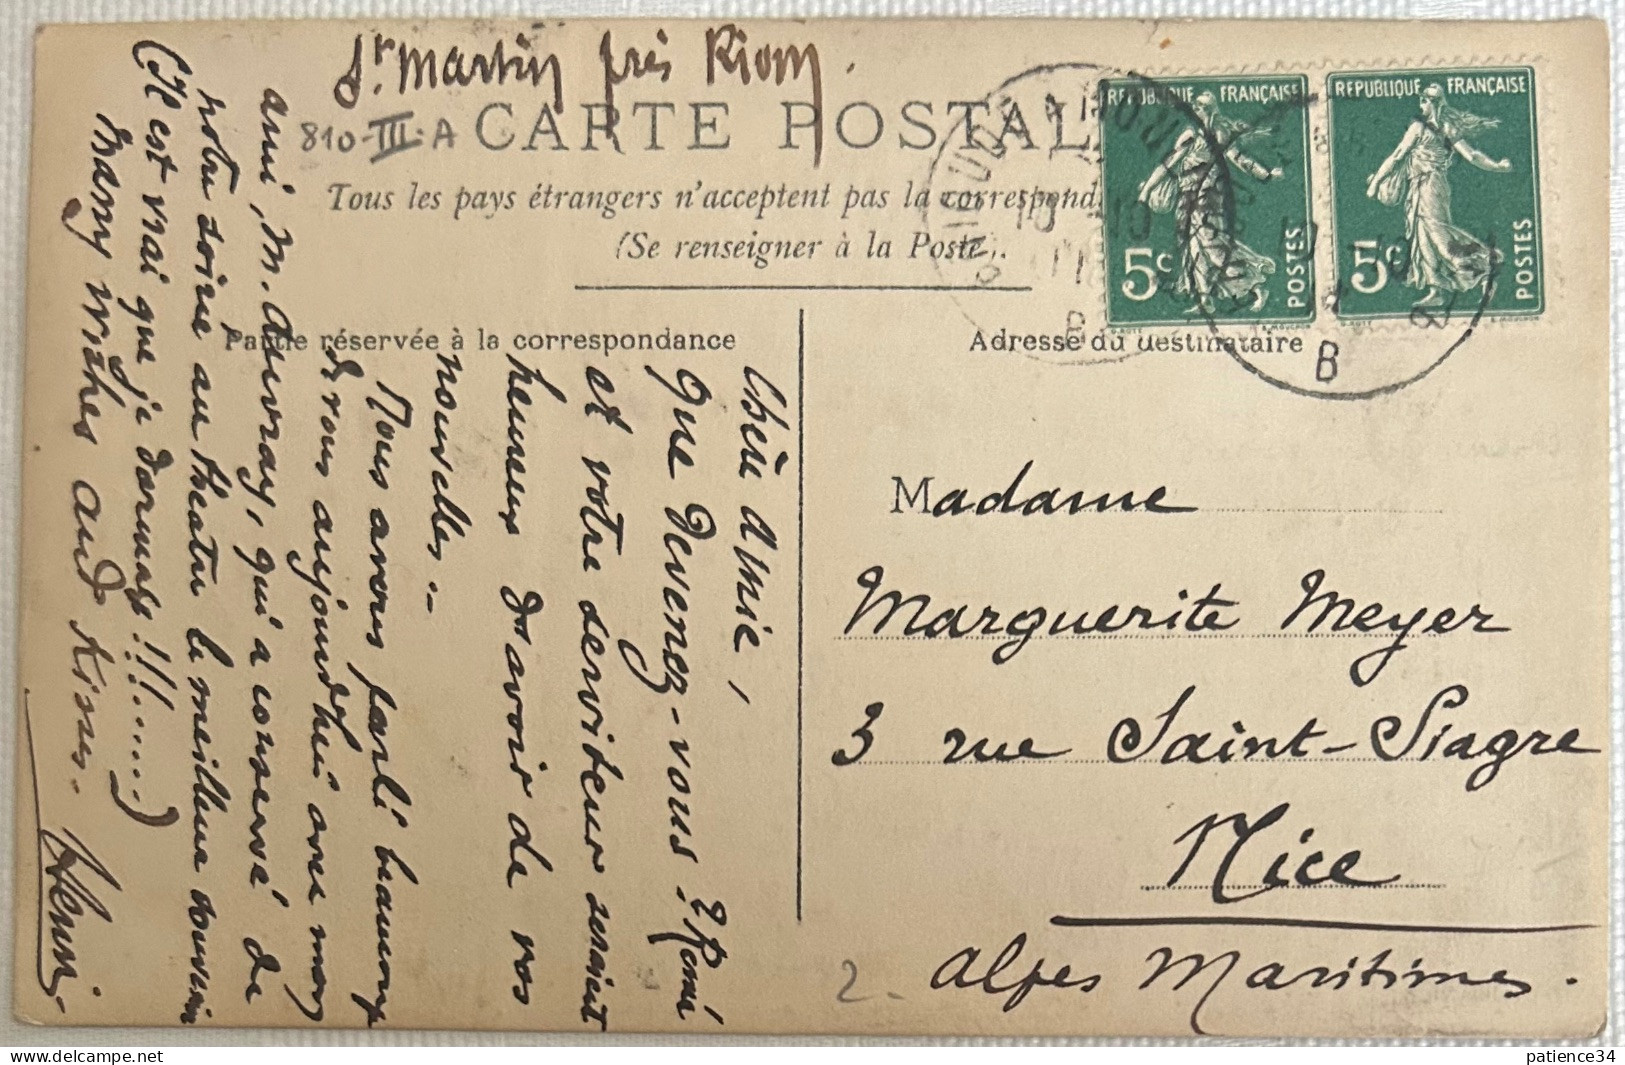 St. Martin près Riom.
810-III-A
CARTE POSTALE
Tous les pays étrangers n'acceptent pas la correspond
(Se renseigner à la Poste).
Partie réservée à la correspondance
Adresse du destinataire
REPUBLIQUE FRANÇAISE
5c POSTES
REPUBLIQUE FRANÇAISE
5c POSTES
B
B
Chère amie,
que devenez-vous? René
et votre serviteur seraient
heureux d'avoir de vos
nouvelles..-
Nous avons parlé beaucoup
de vous aujourd'hui avec mon
ami, M. Auvray, qui a conservé de
notre soirée au théatre le meilleur souvenir
(Il est vrai que je dormais !!!......)
Many wishes and kisses.
Henri.
Madame
Marguerite Meyer
3 rue Saint-Siagre
Nice
Alpes Maritimes.
2.
patience34